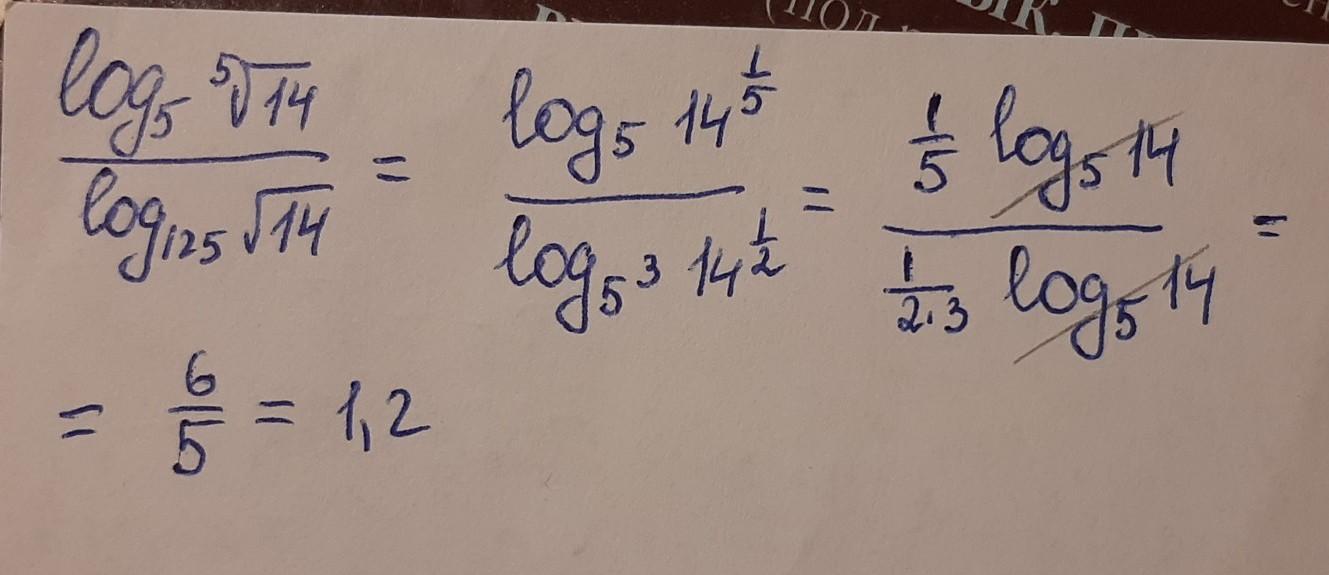 (ПОД
log₅ ⁵√14 / log₁₂₅ √14 = log₅ 14^(1/5) / log₅³ 14^(1/2) = 1/5 log₅ 14 / 1/(2·3) log₅ 14 =
= 6/5 = 1,2